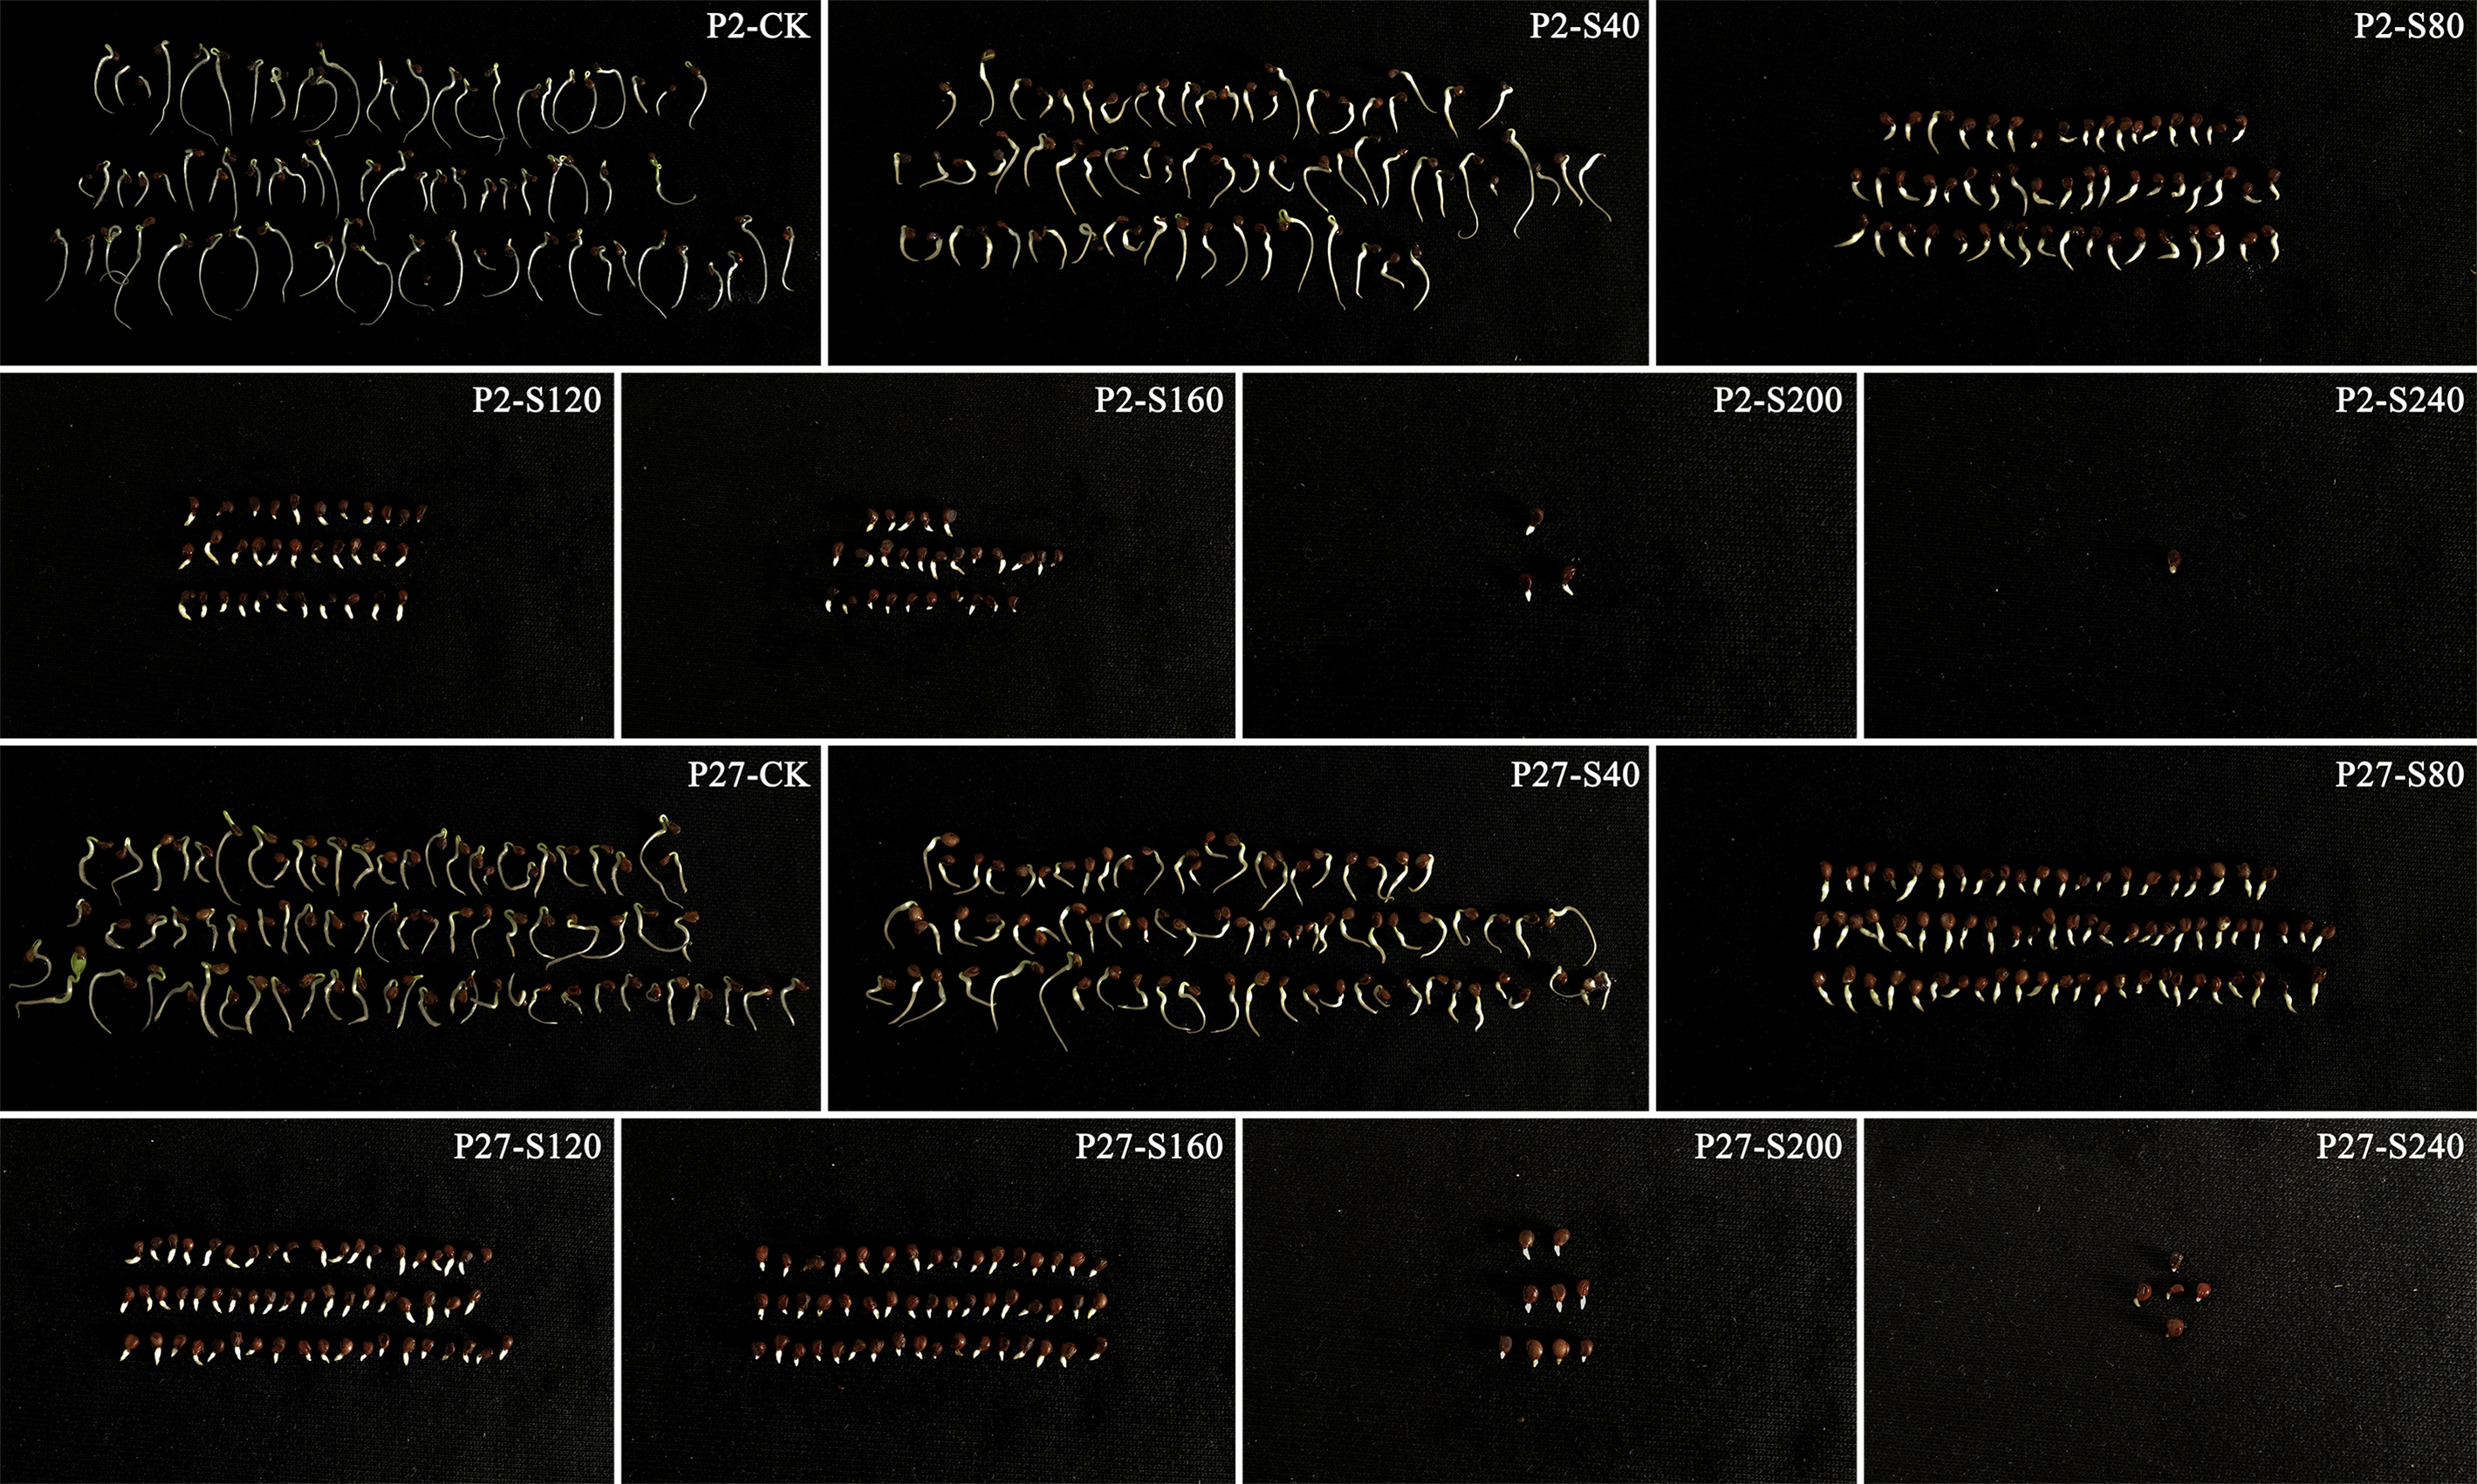 P2-CK
P2-S40
P2-S80
P2-S120
P2-S160
P2-S200
P2-S240
P27-CK
P27-S40
P27-S80
P27-S120
P27-S160
P27-S200
P27-S240